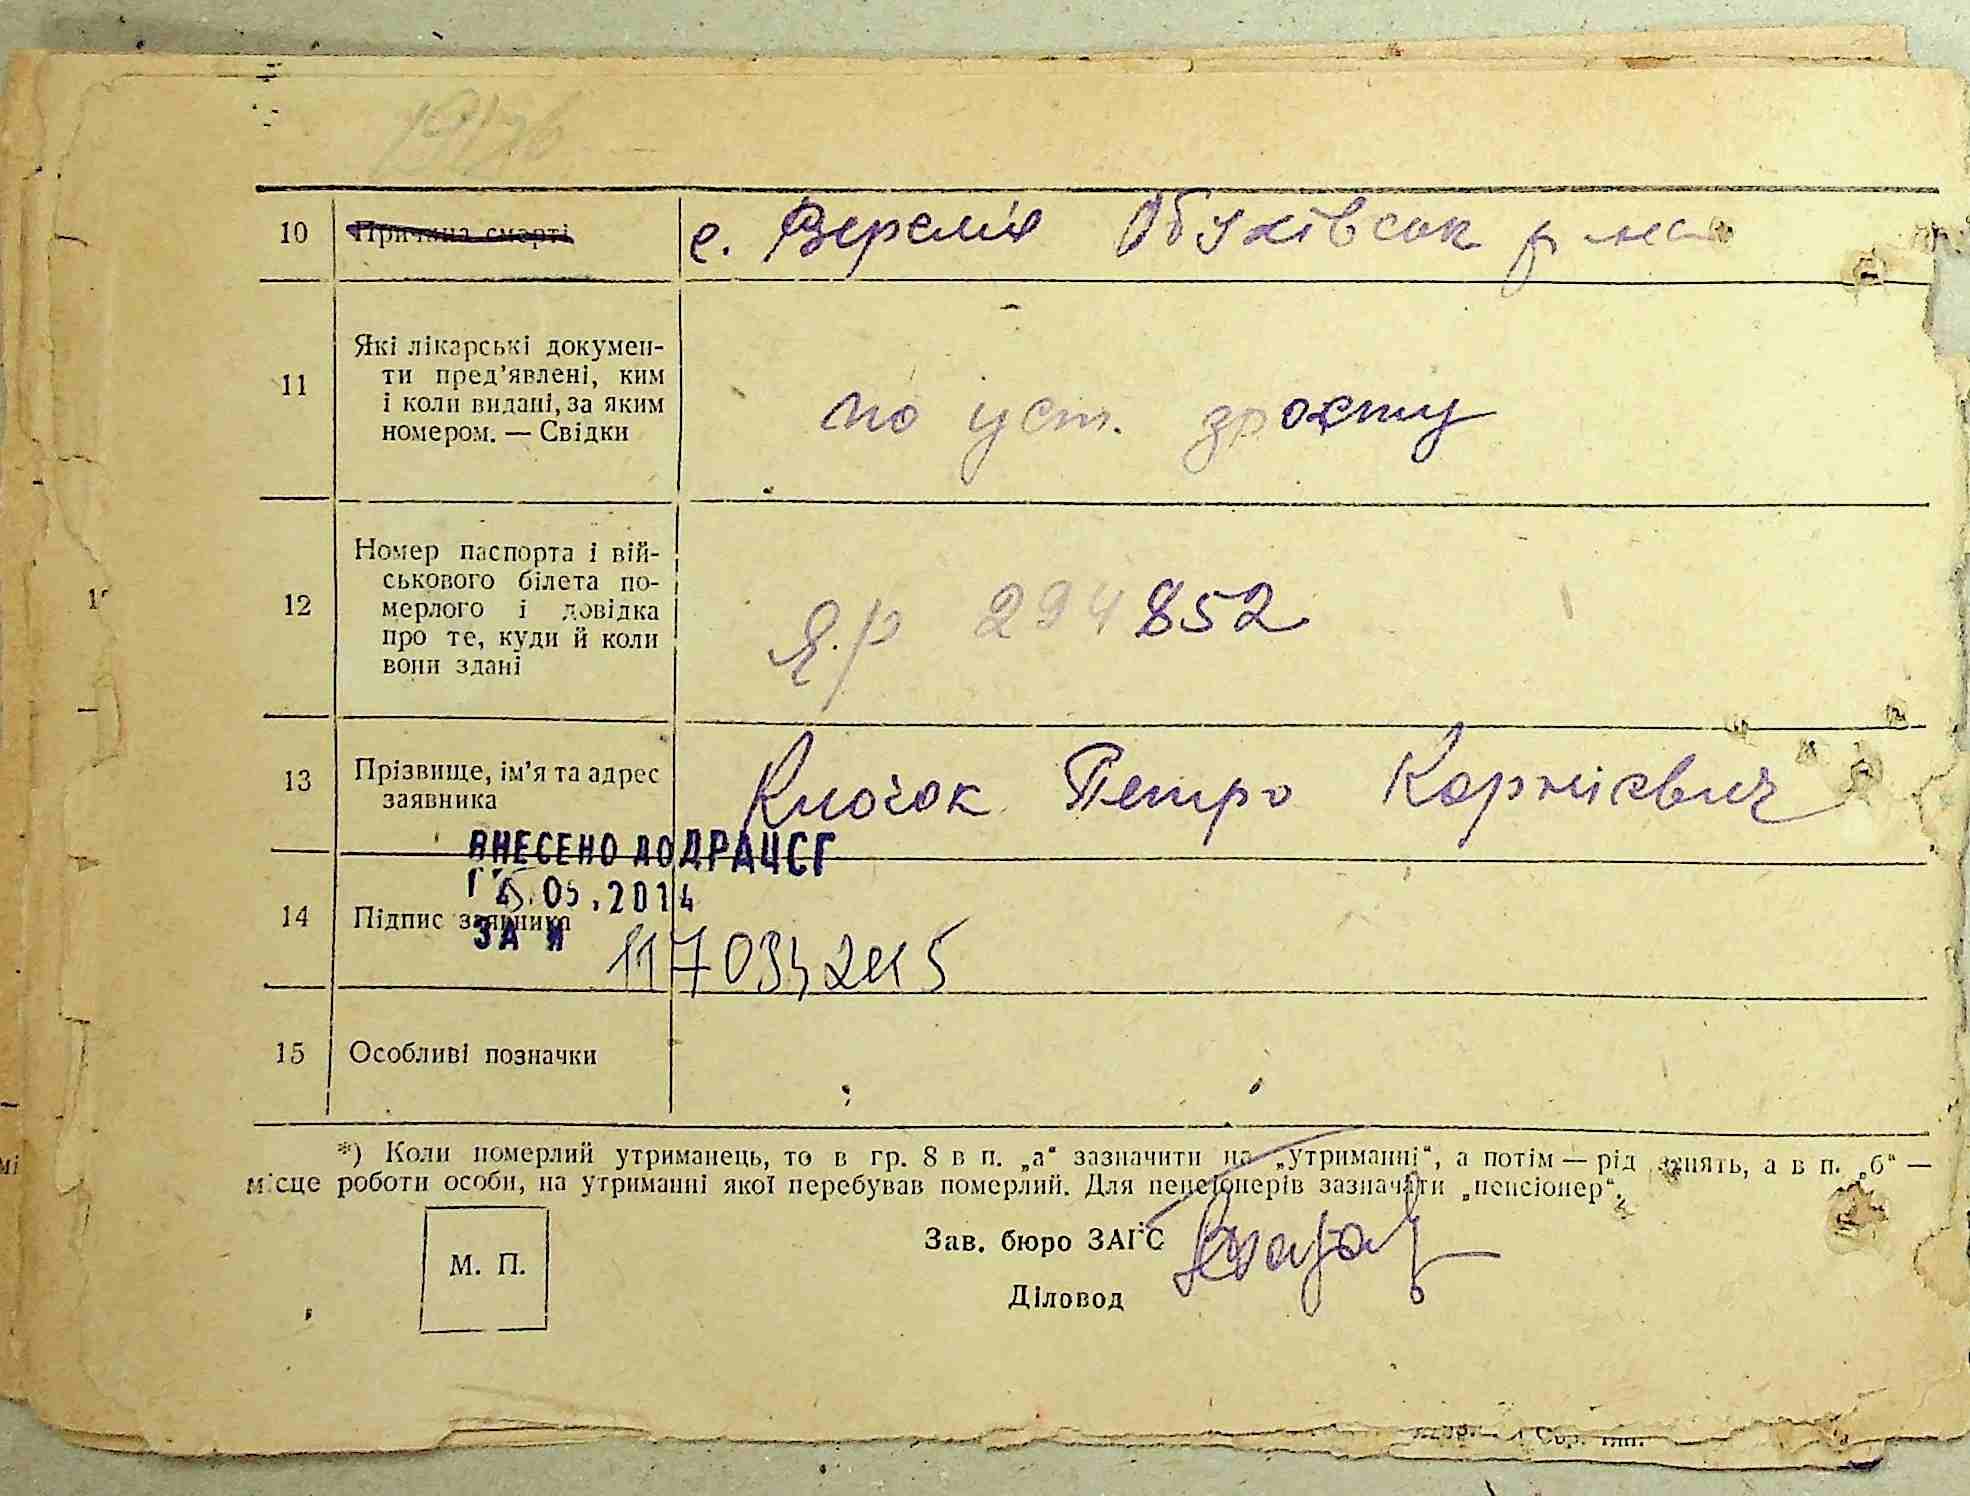 10 Причина смерті с. Веремія Обухівськ р-на
11 Які лікарські докумен-
ти пред’явлені, ким
і коли видані, за яким
номером. — Свідки
по уст. зросту
12 Номер паспорта і вій-
ськового білета по-
мерлого і довідка
про те, куди й коли
вони здані
294852
13 Прізвище, ім’я та адрес
заявника
Клочок Петро Корнієвич
ВНЕСЕНО ДО ДРАЦСГ
05.2014
14 Підпис заявника
ЗА №
15 Особливі позначки
*) Коли померлий утриманець, то в гр. 8 в п. „а“ зазначити на „утриманні“, а потім — рід занять, а в п. „б“ —
місце роботи особи, на утриманні якої перебував померлий. Для пенсіонерів зазначати „пенсіонер“.
М. П.
Зав. бюро ЗАГС
Діловод